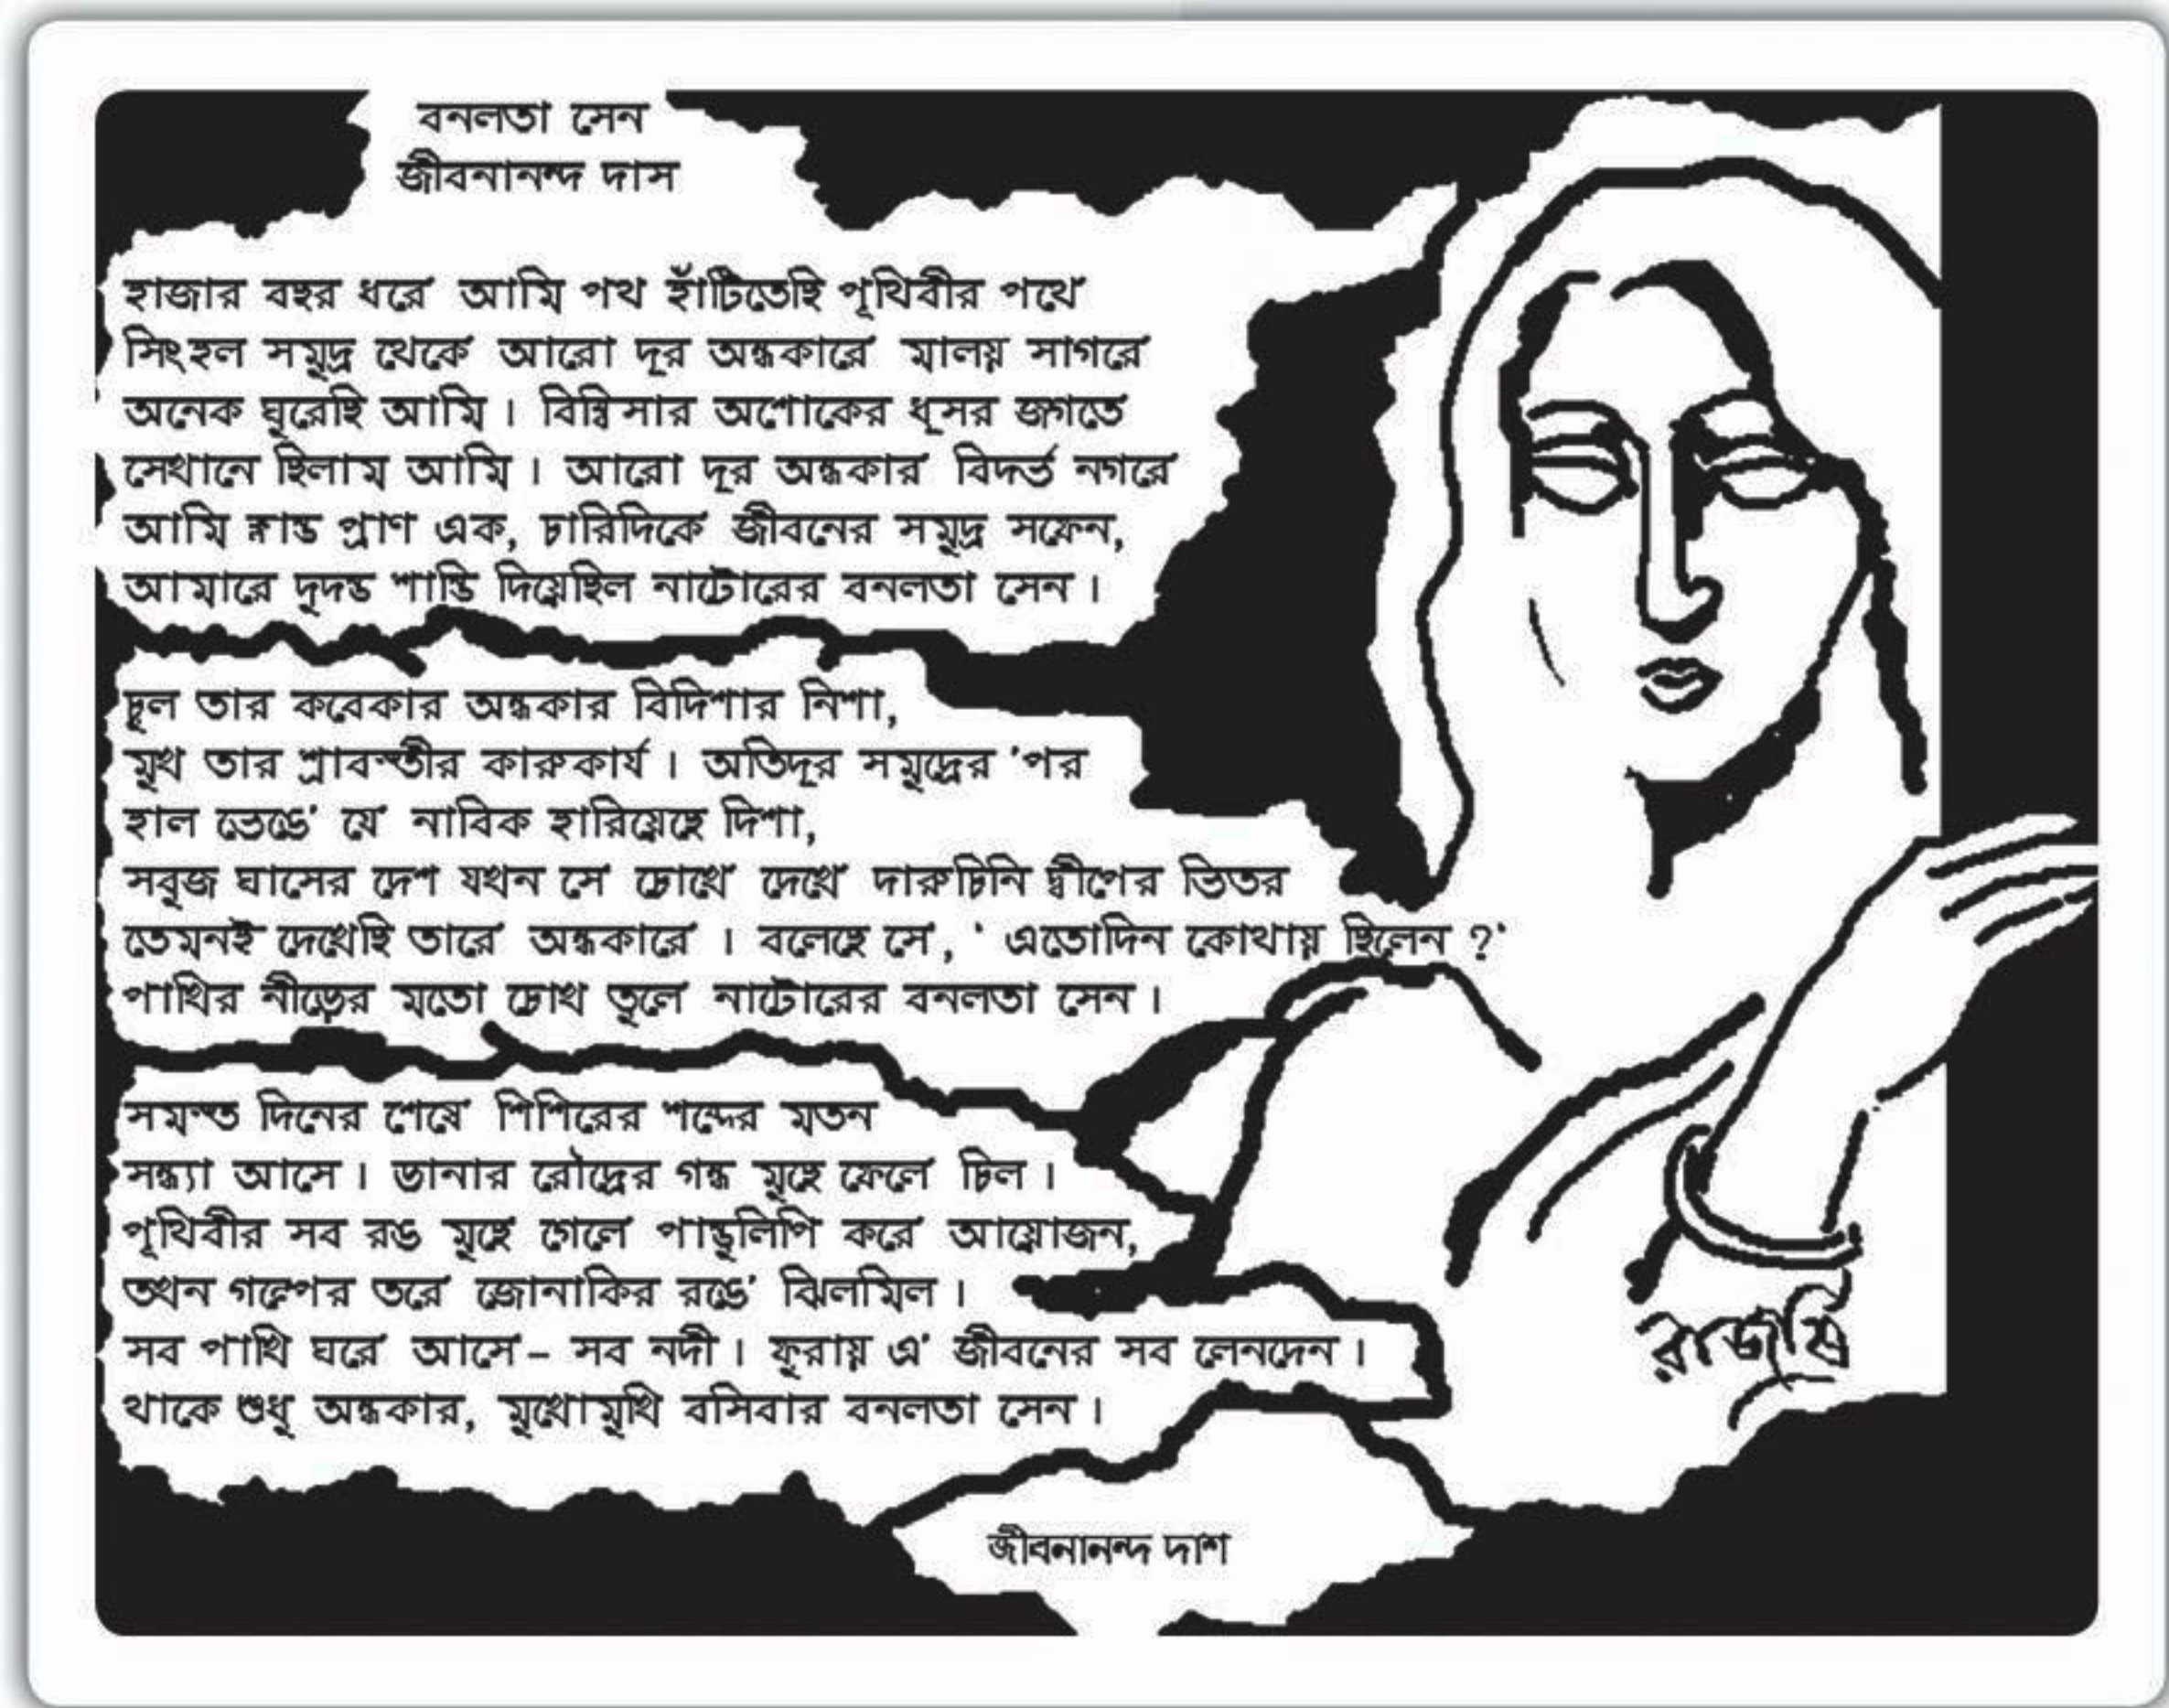 বনলতা সেন
জীবনানন্দ দাস
হাজার বছর ধরে' আমি পথ হাঁটিতেছি পৃথিবীর পথে'
সিংহল সমুদ্র থেকে' আরো দূর অন্ধকারে' মালয় সাগরে'
অনেক ঘুরেছি আমি । বিম্বিসার অশোকের ধূসর জগতে'
সেখানে ছিলাম আমি । আরো দূর অন্ধকার' বিদর্ভ নগরে'
আমি ক্লান্ত প্রাণ এক, চারিদিকে' জীবনের সমুদ্র সফেন,
আমারে দুদন্ড শান্তি দিয়েছিল নাটোরের বনলতা সেন ।
চুল তার কবেকার অন্ধকার বিদিশার নিশা,
মুখ তার শ্রাবস্তীর কারুকার্য । অতিদূর সমুদ্রের 'পর
হাল ভেঙে' যে' নাবিক হারিয়েছে দিশা,
সবুজ ঘাসের দেশ যখন সে' চোখে' দেখে' দারুচিনি দ্বীপের ভিতর
তেমনই দেখেছি তারে' অন্ধকারে' । বলেছে সে', ' এতোদিন কোথায় ছিলেন ?'
পাখির নীড়ের মতো চোখ তুলে' নাটোরের বনলতা সেন ।
সমস্ত দিনের শেষে' শিশিরের শব্দের মতন
সন্ধ্যা আসে । ডানার রৌদ্রের গন্ধ মুছে ফেলে' চিল ।
পৃথিবীর সব রঙ মুছে' গেলে' পান্ডুলিপি করে' আয়োজন,
তখন গল্পের তরে' জোনাকির রঙে' ঝিলমিল ।
সব পাখি ঘরে' আসে'– সব নদী । ফুরায় এ' জীবনের সব লেনদেন ।
থাকে শুধু অন্ধকার, মুখোমুখি বসিবার বনলতা সেন ।
রাজর্ষি
জীবনানন্দ দাশ